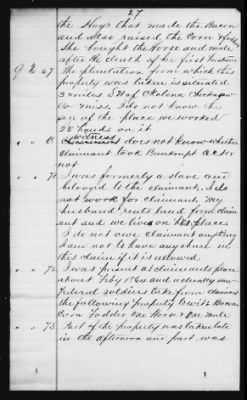 27
the Hogs that made the Bacon
and also raised the Corn & fodder
She bought the Horse and mule
after the death of her first husband
Q No 67 The plantation from which this
property was taken is situated
3 miles SW of Okolona Chickasaw
Co Miss, I do not know the
size of the place we worked
25 hands on it
" " 0 Witness does not know whether
claimant took Bankrupt Act or
not
" " 71 I was formerly a slave and
belonged to the claimant, I do
not work for claimant, My
husband rents land from claim
ant and we live on her place
I do not owe claimant anything
I am not to have any share in
this claim if it is allowed
" " 72 I was present at claimants place
about Feby 1864 and actually saw
Federal soldiers take from claimant
the following property to wit Bacon
Corn Fodder One Horse & One Mule
" " 73 Part of the property was taken late
in the afternoon and part was